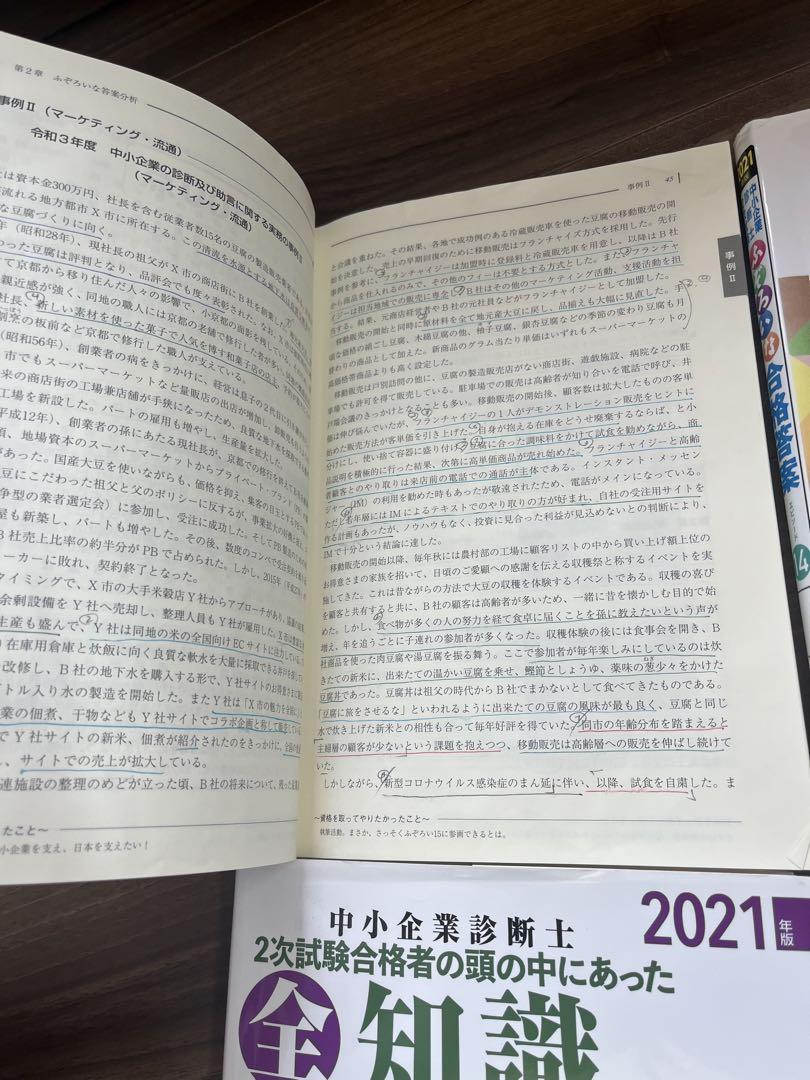 第2章 ふぞろいな答案分析
事例Ⅱ(マーケティング・流通)
令和3年度 中小企業の診断及び助言に関する実務の事例Ⅱ
(マーケティング・流通)
は資本金300万円、社長を含む従業者数15名の豆腐の製造販売業者である
流れる地方都市X市に所在する。この清流を水源とする
な豆腐づくりに向く。
年(昭和28年)、現社長の祖父がX市の商店街にB社を創業した
った豆腐は評判となり、品評会でも度々表彰された。なお、X市は
て京都から移り住んだ人々の影響で、小京都の面影を残している。その
親近感が強く、同地の職人には京都の老舗で修行した者が多い。
社長、新しい素材を使った菓子で人気を博す和菓子店の店主、
割烹の板前など京都で修行した職人が支えている。
(昭和56年)、創業者の病をきっかけに、経営は息子の2代目に引き継
市でもスーパーマーケットなど量販店の出店が増加し、
来の商店街の工場兼店舗が手狭になったため、良質な地下水を
工場を新設した。パートの雇用も増やし、生産量を拡大した。
平成12年)、創業者の孫にあたる現社長が、京都での修行を終えて
頃、地場資本のスーパーマーケットからプライベート・ブランド(PB)
があった。国産大豆を使いながらも、価格を抑え、集客の目玉とする
豆にこだわった祖父と父のポリシーに反するが、事業拡大の
争型の業者選定会)に参加し、受注に成功した。そしてPB製造のため
屋も新築し、パートも増やした。その後、数度のコンペで受注
B社売上比率の約半分がPBで占められた。しかし、2015年(平成27年)
ーカーに敗れ、契約終了となった。
タイミングで、X市の大手米穀店Y社からアプローチがあり、
余剰設備をY社へ売却し、整理人員もY社が雇用した。X市は
生産も盛んで、Y社は同地の米の全国向けECサイトに注力している。
在庫用倉庫と炊飯に向く良質な軟水を大量に採取できる井戸を
改修し、B社の地下水を購入する形で、Y社サイトのお得意さまに
トル入り水の製造を開始した。またY社は「X市の魅力を全国に
業の佃煮、干物なども Y社サイトでコラボ企画と称して販売している
でY社サイトの新米、佃煮が紹介されたのをきっかけに、全国の
し、サイトでの売上が拡大している。
連施設の整理のめどが立った頃、B社の将来について、残った
たこと~
小企業を支え、日本を支えたい!
事例Ⅱ 45
事例Ⅱ
と会議を重ねた。その結果、各地で成功例のある冷蔵販売車を使った豆腐の移動販売の開
始を決意した。売上の早期回復のために移動販売はフランチャイズ方式を採用した。先行
事例を参考に、フランチャイジーは加盟時に登録料と冷蔵販売車を用意し、以降はB社
から商品を仕入れるのみで、その他のフィーは不要とする方式とした。またフランチャ
イジーは担当地域での販売に専念し、B社はその他のマーケティング活動、支援活動を担
当する。結果、元商店経営者やB社の元社員などがフランチャイジーとして加盟した。
移動販売の開始と同時に原材料を全て地元産大豆に戻し、品揃えも大幅に見直した。手
頃な価格の絹ごし豆腐、木綿豆腐の他、柚子豆腐、銀杏豆腐などの季節の変わり豆腐も月
替わりの商品として加えた。新商品のグラム当たり単価はいずれもスーパーマーケットの
高価格帯商品よりも高く設定した。
移動販売は戸別訪問の他に、豆腐の製造販売店がない商店街、遊戯施設、病院などの駐
車場でも許可を得て販売している。駐車場での販売は高齢者が知り合いを電話で呼び、井
戸端会議のきっかけとなることも多い。移動販売の開始後、顧客数は拡大したものの客単
価は伸び悩んでいたが、フランチャイジーの1人がデモンストレーション販売をヒントに
始めた販売方法が客単価を引き上げた。自身が抱える在庫をどうせ廃棄するならば、と小
分けし、使い捨て容器に盛り付け、豆腐に合った調味料をかけて試食を勧めながら、商
品説明を積極的に行った結果、次第に高単価商品が売れ始めた。フランチャイジーと高齢
者顧客とのやり取りは来店前の電話での通話が主体である。インスタント・メッセン
ジャー(IM)の利用を勧めた時もあったが敬遠されたため、電話がメインになっている。
ただし若年層にはIMによるテキストでのやり取りの方が好まれ、自社の受注用サイトを
作る計画もあったが、ノウハウもなく、投資に見合った利益が見込めないとの判断により、
IMで十分という結論に達した。
移動販売の開始以降、毎年秋には農村部の工場に顧客リストの中から買い上げ額上位の
お得意さまの家族を招いて、日頃のご愛顧への感謝を伝える収穫祭と称するイベントを実
施してきた。これは昔ながらの方法で大豆の収穫を体験するイベントである。収穫の喜び
を顧客と共有すると共に、B社の顧客は高齢者が多いため、一緒に昔を懐かしむ目的で始
めた。しかし、食べ物が多くの人の努力を経て食卓に届くことを孫に教えたいという声が
増え、年を追うごとに子連れの参加者が多くなった。収穫体験の後には食事会を開き、B
社商品を使った肉豆腐や湯豆腐を振る舞う。ここで参加者が毎年楽しみにしているのは炊
きたての新米に、出来たての温かい豆腐を乗せ、鰹節としょうゆ、薬味の葱少々をかけた
豆腐丼であった。豆腐丼は祖父の時代からB社でまかないとして食べてきたものである。
「豆腐に旅をさせるな」といわれるように出来たての豆腐の風味が最も良く、豆腐と同じ
水で炊き上げた新米との相性も合って毎年好評を得ていた。同市の年齢分布を踏まえると
主婦層の顧客が少ないという課題を抱えつつ、移動販売は高齢層への販売を伸ばし続けて
いた。
しかしながら、新型コロナウイルス感染症のまん延に伴い、以降、試食を自粛した。ま
~資格を取ってやりたかったこと~
執筆活動。まさか、さっそくふぞろい15に参画できるとは。
2021
中小企業診断士
ふぞろいな合格答案
エピソード
14
中小企業診断士
2021年版
2次試験合格者の頭の中にあった
全知識